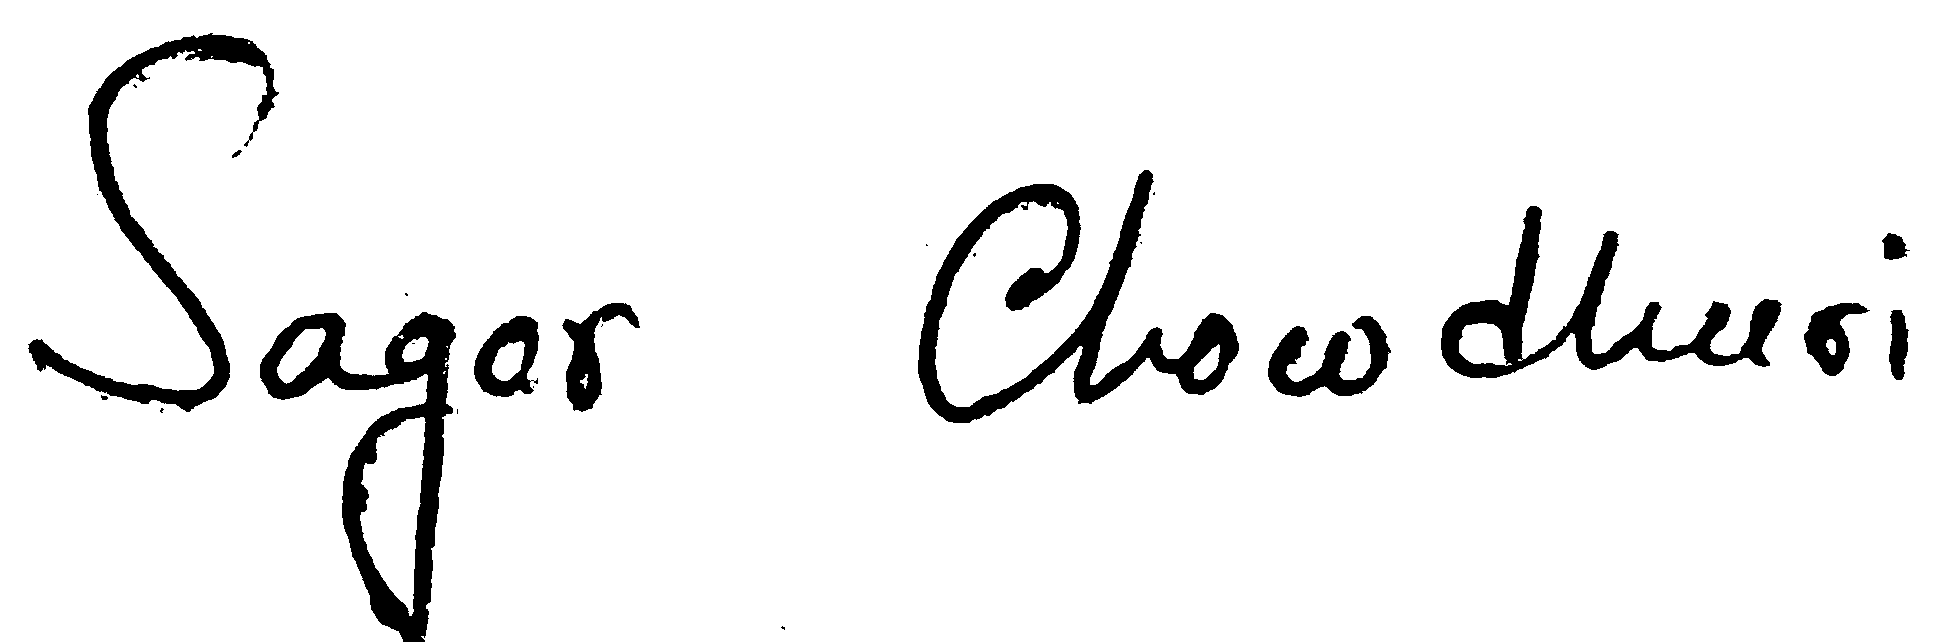 Sagar Chowdhuri